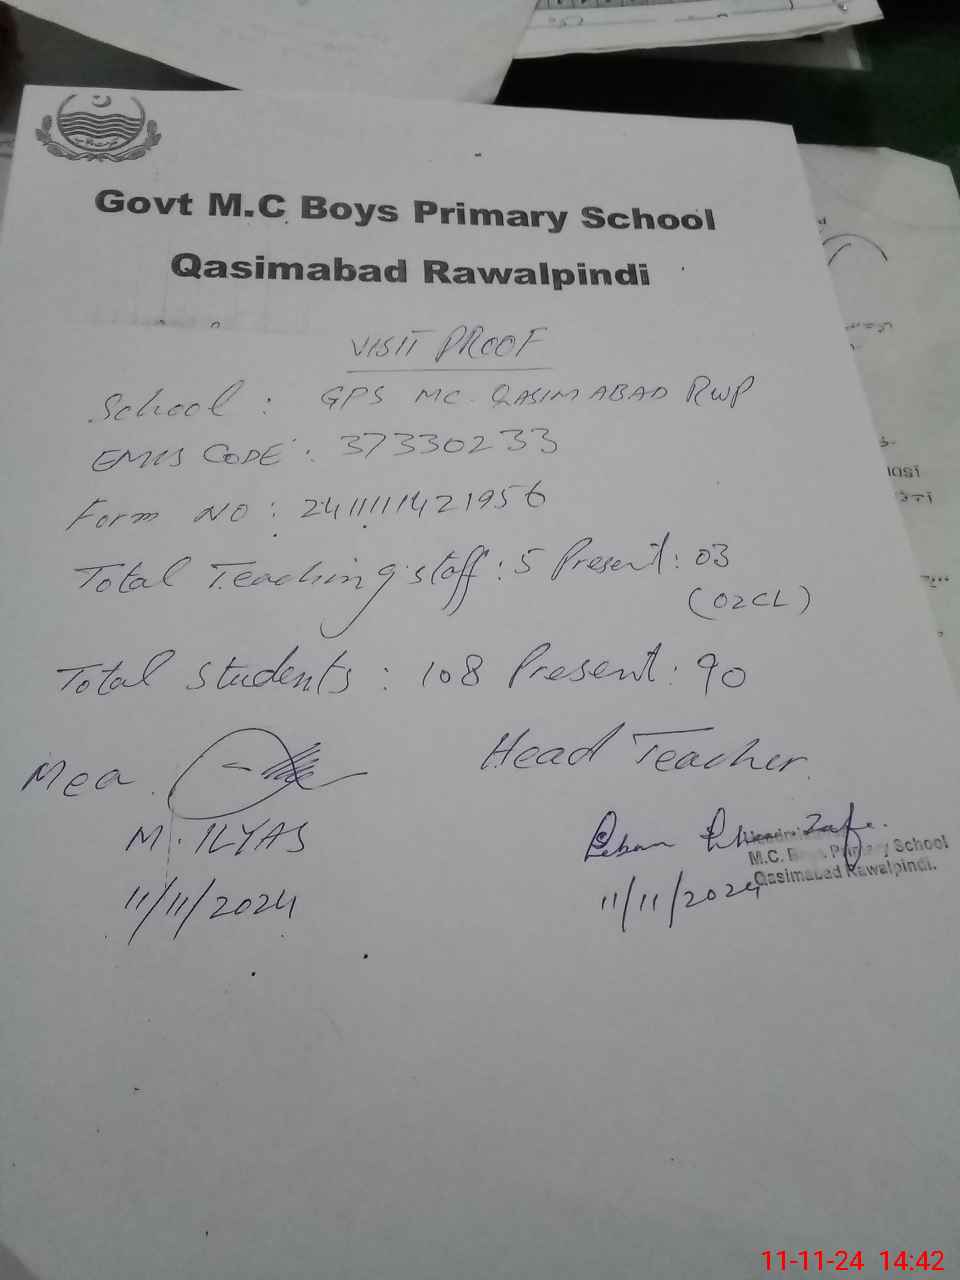 Govt M.C Boys Primary School
Qasimabad Rawalpindi
VISIT PROOF
School : GPS MC. QASIMABAD RWP
EMIS CODE : 37330233
Form NO : 241111421956
Total Teaching staff : 5 Present : 03
(02CL)
Total Students : 108 Present : 90
Mea
Head Teacher
M. ILYAS
11/11/2024
M.C. Boys Primary School
Qasimabad Rawalpindi.
11/11/2024
11-11-24 14:42